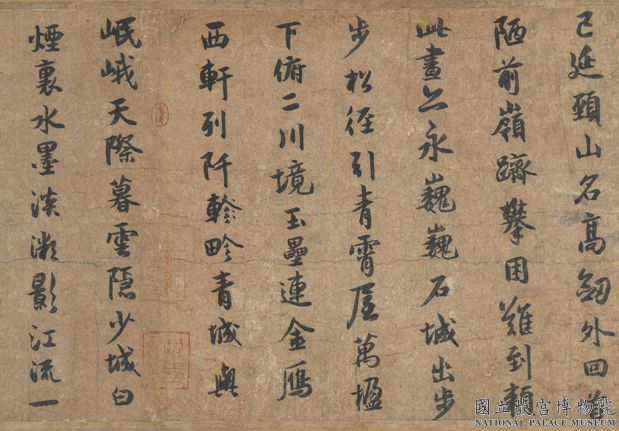 已延頸山名高劒外回首
陋前嶺躋攀困難到賴
此畫永巍巍石城出步
步松徑引青霄屋萬楹
下俯二川境玉壘連金鴈
西軒列阡畛青城與
岷峨天際暮雲隱少城白
煙裏水墨淡影江流一
國立故宮博物院
NATIONAL PALACE MUSEUM